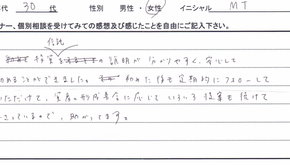 代 30代 性別 男性・女性 イニシャル MT
ナー、個別相談を受けてみての感想及び感じたことを自由にご記入下さい。
信託
投資 の説明が分かりやすく、安心して
めることができました。 初めた後も定期的にフォローして
いただけて、資産の形成具合に応じていろいろ提案も頂けて
さっているので、助かってます。